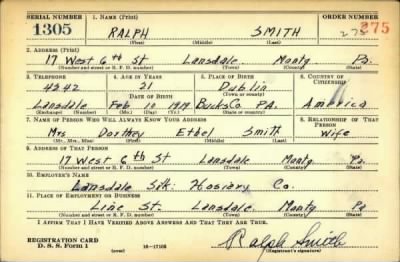 SERIAL NUMBER 1. NAME (Print) ORDER NUMBER
1305 RALPH SMITH 275 375
(First) (Middle) (Last)
2. ADDRESS (Print)
17 West 6th St Lansdale Montg Pa.
(Number and street or R. F. D. number) (Town) (County) (State)
3. TELEPHONE 4. AGE IN YEARS 5. PLACE OF BIRTH 6. COUNTRY OF CITIZENSHIP
4242 21 Dublin
DATE OF BIRTH (Town or county)
Lansdale Feb 10 1919 Bucks Co PA. America
(Exchange) (Number) (Mo.) (Day) (Yr.) (State or country)
7. NAME OF PERSON WHO WILL ALWAYS KNOW YOUR ADDRESS 8. RELATIONSHIP OF THAT PERSON
Mrs Dorthey Ethel Smith Wife
(Mr., Mrs., Miss) (First) (Middle) (Last)
9. ADDRESS OF THAT PERSON
17 West 6th St Lansdale Montg Pa
(Number and street or R. F. D. number) (Town) (County) (State)
10. EMPLOYER'S NAME
Lansdale Silk Hosiery Co.
11. PLACE OF EMPLOYMENT OR BUSINESS
Line St. Lansdale. Montg Pa
(Number and street or R. F. D. number) (Town) (County) (State)
I AFFIRM THAT I HAVE VERIFIED ABOVE ANSWERS AND THAT THEY ARE TRUE.
REGISTRATION CARD
D. S. S. Form 1 (over) 16—17105 Ralph Smith
(Registrant's signature)